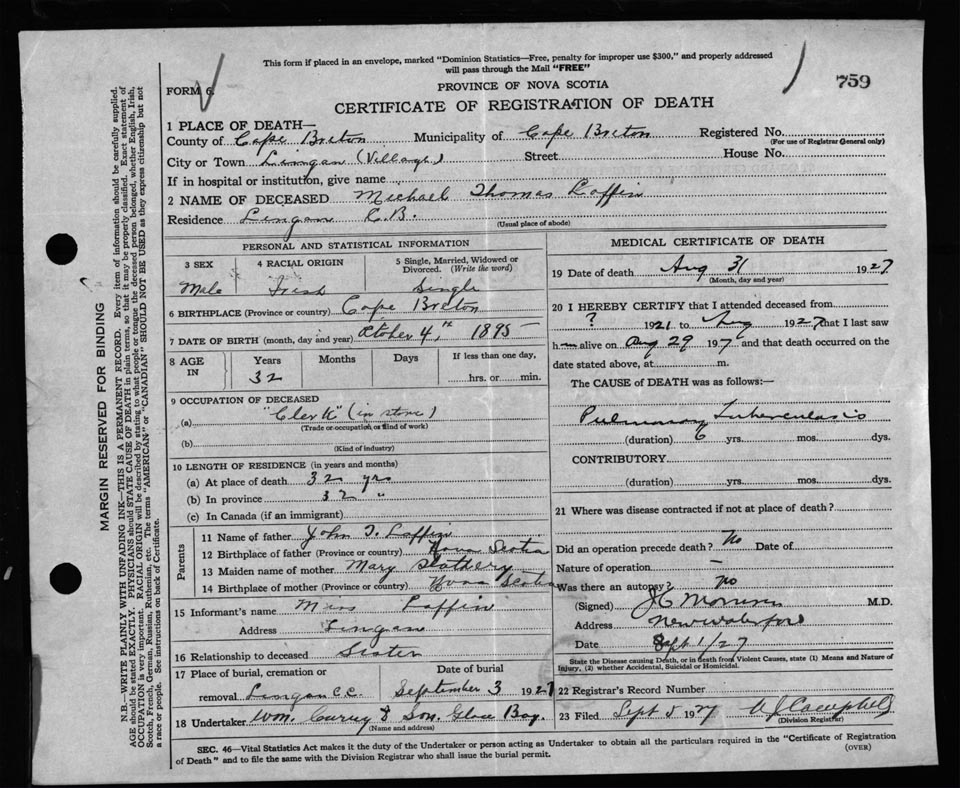 This form if placed in an envelope, marked "Dominion Statistics—Free, penalty for improper use $300," and properly addressed
will pass through the Mail "FREE"
759
FORM 6.
PROVINCE OF NOVA SCOTIA
CERTIFICATE OF REGISTRATION OF DEATH
1 PLACE OF DEATH—
County of Cape Breton Municipality of Cape Breton Registered No.
(For use of Registrar General only)
City or Town Lingan (Village) Street House No.
If in hospital or institution, give name
2 NAME OF DECEASED Michael Thomas Laffin
Residence Lingan C.B.
(Usual place of abode)
PERSONAL AND STATISTICAL INFORMATION
3 SEX 4 RACIAL ORIGIN 5 Single, Married, Widowed or Divorced. (Write the word)
Male Irish Single
6 BIRTHPLACE (Province or country) Cape Breton
7 DATE OF BIRTH (month, day and year) October 4th 1895
8 AGE IN Years Months Days If less than one day,
32 hrs. or min.
9 OCCUPATION OF DECEASED
(a) "Clerk" (in store)
(Trade or occupation or kind of work)
(b)
(Kind of industry)
10 LENGTH OF RESIDENCE (in years and months)
(a) At place of death 32 yrs
(b) In province 32 "
(c) In Canada (if an immigrant)
Parents
11 Name of father John T. Laffin
12 Birthplace of father (Province or country) Nova Scotia
13 Maiden name of mother Mary Slattery
14 Birthplace of mother (Province or country) Nova Scotia
15 Informant's name Miss Laffin
Address Lingan
16 Relationship to deceased Sister
17 Place of burial, cremation or Date of burial
removal Lingan C.C. September 3 1927
18 Undertaker Wm. Curry & Son. Glace Bay.
(Name and address)
MEDICAL CERTIFICATE OF DEATH
19 Date of death Aug 31 1927
(Month, day and year)
20 I HEREBY CERTIFY that I attended deceased from
? 1921 to Aug 1927 that I last saw
h alive on Aug 29 1927 and that death occurred on the
date stated above, at m.
The CAUSE of DEATH was as follows:
Pulmonary Tuberculosis
(duration) 6 yrs. mos. dys.
CONTRIBUTORY
(duration) yrs. mos. dys.
21 Where was disease contracted if not at place of death?
Did an operation precede death? No Date of
Nature of operation —
Was there an autopsy? No
(Signed) M.D.
Address New Waterford
Date Sept 1/27
State the Disease causing Death, or in death from Violent Causes, state (1) Means and Nature of
Injury, (2) whether Accidental, Suicidal or Homicidal.
22 Registrar's Record Number
23 Filed Sept 5 1927 Campbell
(Division Registrar)
SEC. 46—Vital Statistics Act makes it the duty of the Undertaker or person acting as Undertaker to obtain all the particulars required in the "Certificate of Registration
of Death" and to file the same with the Division Registrar who shall issue the burial permit.
(OVER)
MARGIN RESERVED FOR BINDING
N.B.—WRITE PLAINLY WITH UNFADING INK—THIS IS A PERMANENT RECORD. Every item of information should be carefully supplied.
AGE should be stated EXACTLY. PHYSICIANS should STATE CAUSE OF DEATH in plain terms, so that it may be properly classified. Exact statement of
OCCUPATION is very important. RACIAL ORIGIN will be described by stating to what people or tongue the deceased person belonged, whether English, Irish,
Scotch, French, German, Russian, Ruthenian, etc. The terms "AMERICAN" or "CANADIAN" SHOULD NOT BE USED as they express citizenship but not
a race or people. See instructions on back of Certificate.